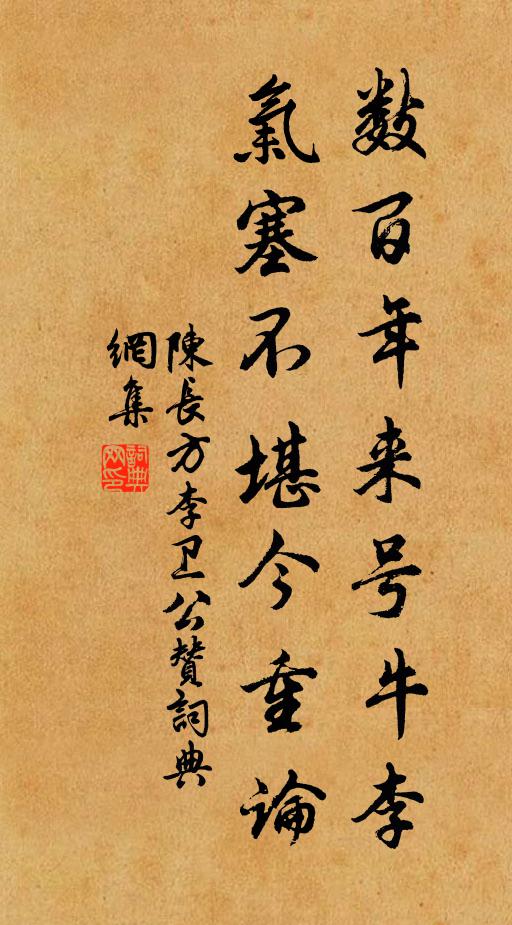 数百年来号牛李
氣塞不堪今重論
陳長方李卫公贊詞典
網集
詞典
网印